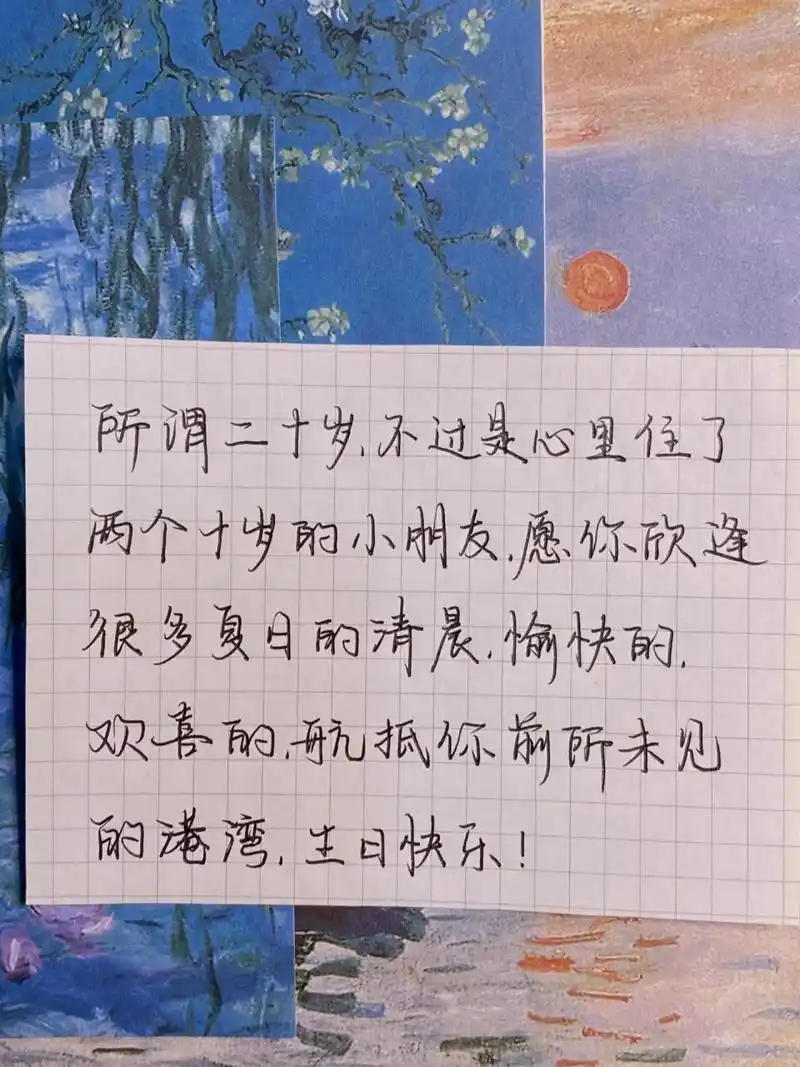 所谓二十岁,不过是心里住了
两个十岁的小朋友,愿你欣逢
很多夏日的清晨,愉快的,
欢喜的,航抵你前所未见
的港湾,生日快乐!